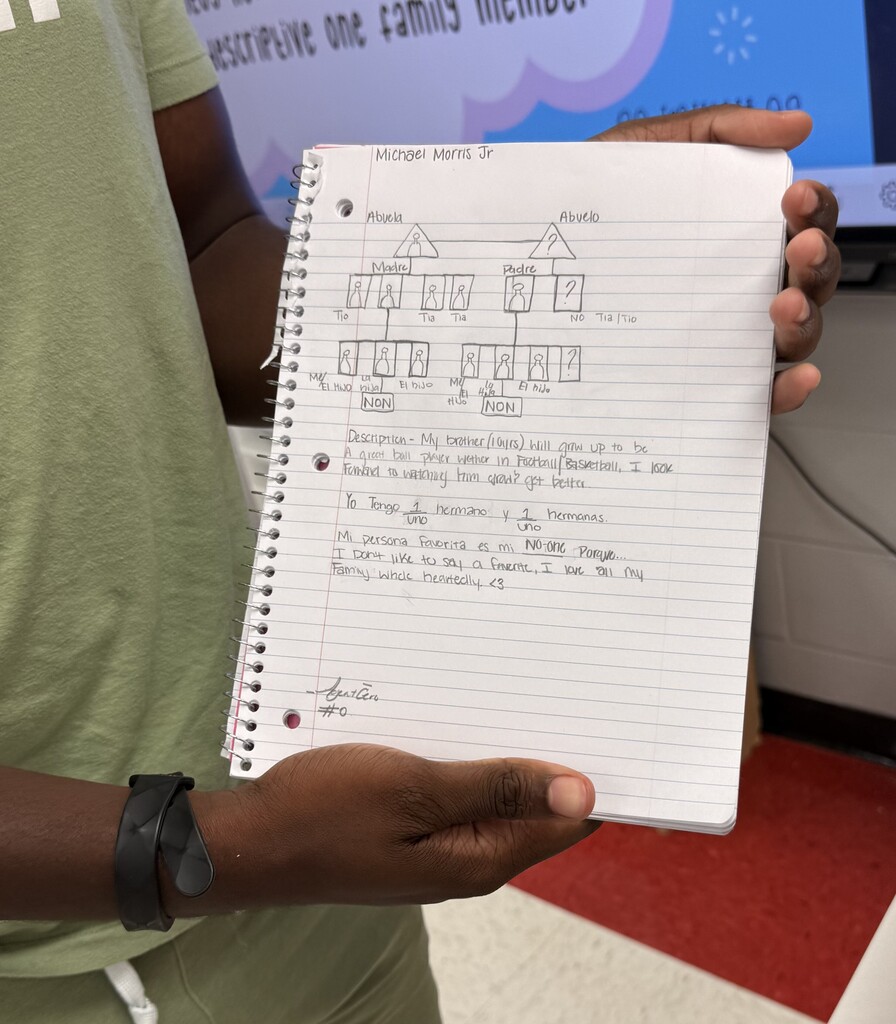 descriptive one family member
Michael Morris Jr
Abuela Abuelo
?
Madre Padre
?
Tio Tia Tia NO Tia/Tio
?
Me/ La El hijo Me/ La El hijo
El Hijo hija El Hija
Hijo
NON NON
Description - My brother (10yrs) will grow up to be
A great ball player wether in Football/Basketball, I look
Forward to watching him grow? get better.
Yo Tengo 1 hermano y 1 hermanas.
uno uno
Mi persona Favorita es mi NO-one Porque...
I Don't like to say a favorite, I love all my
Family whole heartedly <3
#0